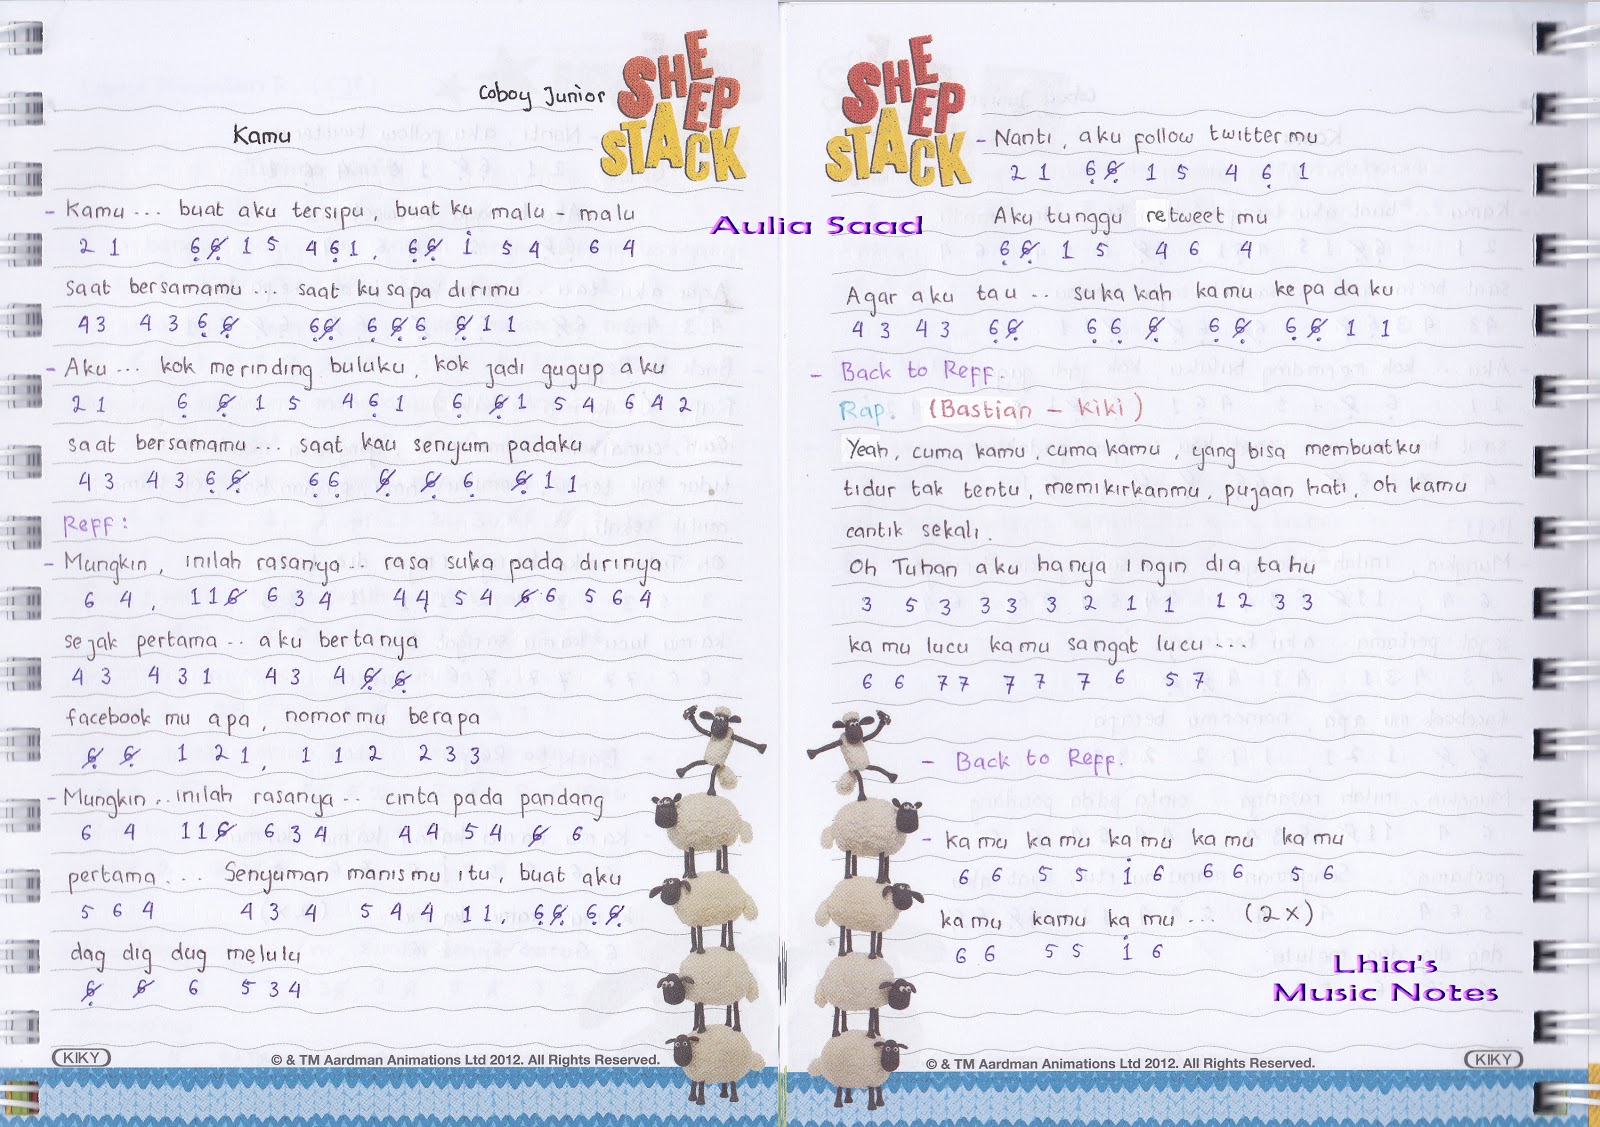 SHEEP STACK
Coboy Junior
Kamu
- Kamu... buat aku tersipu, buat ku malu - malu
2 1 6 6 1 5 4 6 1 , 6 6 1 5 4 6 4
saat bersamamu ... saat kusapa dirimu
4 3 4 3 6 6 6 6 6 6 6 6 1 1
- Aku... kok merinding buluku, kok jadi gugup aku
2 1 6 6 1 5 4 6 1 6 6 1 5 4 6 4 2
saat bersamamu... saat kau senyum padaku
4 3 4 3 6 6 6 6 6 6 6 6 1 1
Reff :
- Mungkin, inilah rasanya .. rasa suka pada dirinya
6 4 , 1 1 6 6 3 4 4 4 5 4 6 6 5 6 4
sejak pertama .. aku bertanya
4 3 4 3 1 4 3 4 6 6
facebook mu apa, nomormu berapa
6 6 1 2 1 , 1 1 2 2 3 3
- Mungkin .. inilah rasanya .. cinta pada pandang
6 4 1 1 6 6 3 4 4 4 5 4 6 6
pertama... Senyuman manismu itu, buat aku
5 6 4 4 3 4 5 4 4 1 1 , 6 6 6 6
dag dig dug melulu
6 6 6 5 3 4
KIKY
© & TM Aardman Animations Ltd 2012. All Rights Reserved.
Aulia Saad
SHEEP STACK
- Nanti, aku follow twittermu
2 1 6 6 1 5 4 6 1
Aku tunggu retweet mu
6 6 1 5 4 6 4
Agar aku tau .. suka kah kamu kepadaku
4 3 4 3 6 6 6 6 6 6 6 6 6 1 1
- Back to Reff.
Rap. (Bastian - kiki)
Yeah, cuma kamu, cuma kamu, yang bisa membuatku
tidur tak tentu, memikirkanmu, pujaan hati, oh kamu
cantik sekali.
Oh Tuhan aku hanya ingin dia tahu
3 5 3 3 3 3 2 1 1 1 2 3 3
kamu lucu kamu sangat lucu ...
6 6 7 7 7 7 7 6 5 7
- Back to Reff.
- kamu kamu kamu kamu kamu
6 6 5 5 1 6 6 6 5 6
kamu kamu kamu ... (2x)
6 6 5 5 1 6
Lhia's
Music Notes
© & TM Aardman Animations Ltd 2012. All Rights Reserved.
KIKY